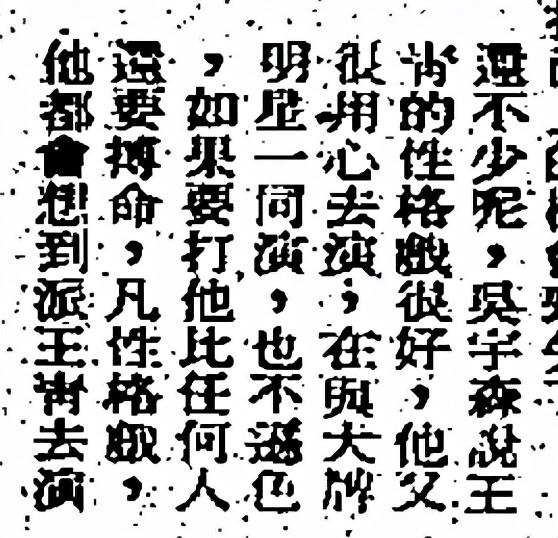 還不少呢，吳宇森說王
青的性格戲很好，他又
很用心去演，在與大牌
明星一同演，也不遜色
，如果要打他比任何人
還要搏命，凡性格戲，
他都會想到派王青去演